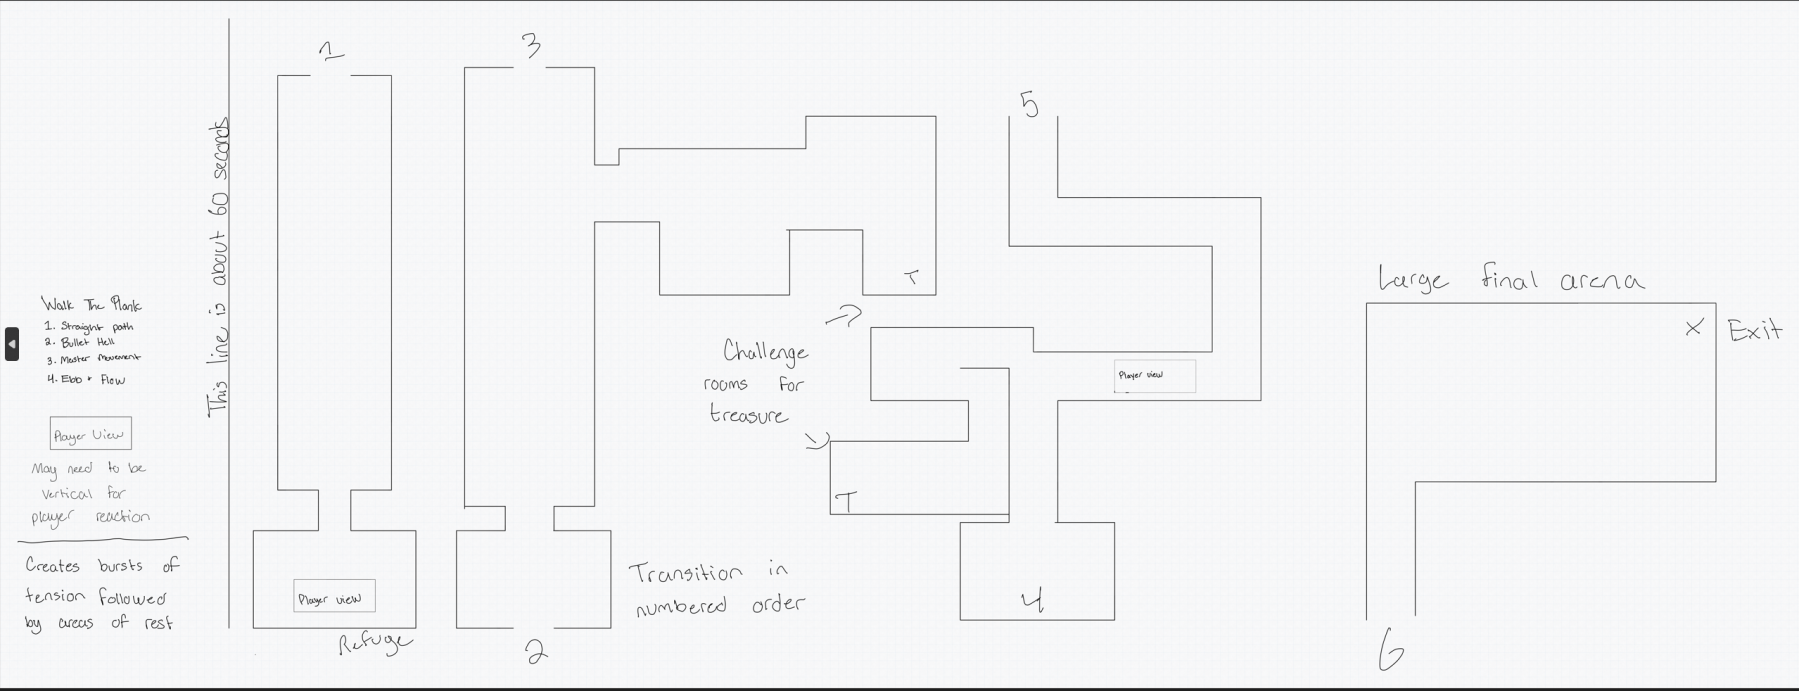 Walk The Plank
1. Straight path
2. Bullet Hell
3. Master Movement
4. Ebb + Flow
Player View
May need to be
vertical for
player reaction
Creates bursts of
tension followed
by areas of rest
This line is about 60 seconds
1
Player view
Refuge
3
2
T
Challenge
rooms for
treasure
T
Transition in
numbered order
5
Player view
4
Large final arena
X Exit
6